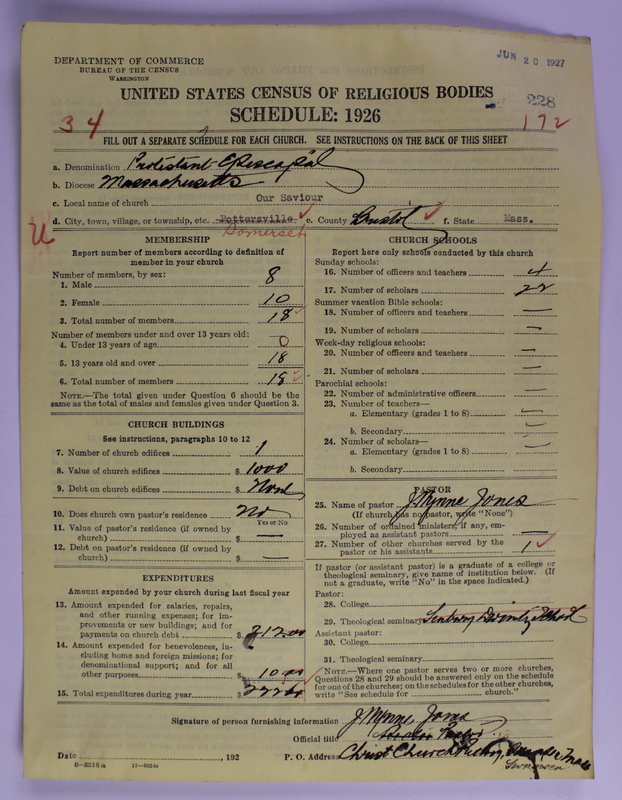 DEPARTMENT OF COMMERCE
BUREAU OF THE CENSUS
WASHINGTON
JUN 20 1927
UNITED STATES CENSUS OF RELIGIOUS BODIES
228
SCHEDULE: 1926
34
172
FILL OUT A SEPARATE SCHEDULE FOR EACH CHURCH. SEE INSTRUCTIONS ON THE BACK OF THIS SHEET
a. Denomination Protestant Episcopal
b. Diocese Massachusetts
c. Local name of church Our Saviour
d. City, town, village, or township, etc. Pottersville e. County Bristol f. State Mass.
Somerset
U
MEMBERSHIP
Report number of members according to definition of
member in your church
Number of members, by sex:
1. Male 8
2. Female 10
3. Total number of members 18
Number of members under and over 13 years old:
4. Under 13 years of age 0
5. 13 years old and over 18
6. Total number of members 18
NOTE.—The total given under Question 6 should be
same as the total of males and females given under Question 3.
CHURCH BUILDINGS
See instructions, paragraphs 10 to 12
7. Number of church edifices 1
8. Value of church edifices $ 1000
9. Debt on church edifices $ None
10. Does church own pastor's residence No
Yes or No
11. Value of pastor's residence (if owned by
church) $ —
12. Debt on pastor's residence (if owned by
church) $ —
EXPENDITURES
Amount expended by your church during last fiscal year
13. Amount expended for salaries, repairs,
and other running expenses; for im-
provements or new buildings; and for
payments on church debt $ 212.00
14. Amount expended for benevolences, in-
cluding home and foreign missions; for
denominational support; and for all
other purposes $ 10.00
15. Total expenditures during year $ 222.00
CHURCH SCHOOLS
Report here only schools conducted by this church
Sunday schools:
16. Number of officers and teachers 4
17. Number of scholars 22
Summer vacation Bible schools:
18. Number of officers and teachers —
19. Number of scholars —
Week-day religious schools:
20. Number of officers and teachers —
21. Number of scholars —
Parochial schools:
22. Number of administrative officers —
23. Number of teachers—
a. Elementary (grades 1 to 8) —
b. Secondary —
24. Number of scholars—
a. Elementary (grades 1 to 8) —
b. Secondary
PASTOR
25. Name of pastor J Wynne Jones
(If church has no pastor, write "None")
26. Number of ordained ministers, if any, em-
ployed as assistant pastors —
27. Number of other churches served by the
pastor or his assistants 1
If pastor (or assistant pastor) is a graduate of a college or
theological seminary, give name of institution below. (If
not a graduate, write "No" in the space indicated.)
Pastor:
28. College
29. Theological seminary Seabury Divinity School
Assistant pastor:
30. College
31. Theological seminary
NOTE.—Where one pastor serves two or more churches,
Questions 28 and 29 should be answered only on the schedule
for one of the churches; on the schedules for the other churches,
write "See schedule for church."
Signature of person furnishing information J Wynne Jones
Official title Pastor
Date , 192 P. O. Address Christ Church Rectory, Mass
Swansea
8—5515a